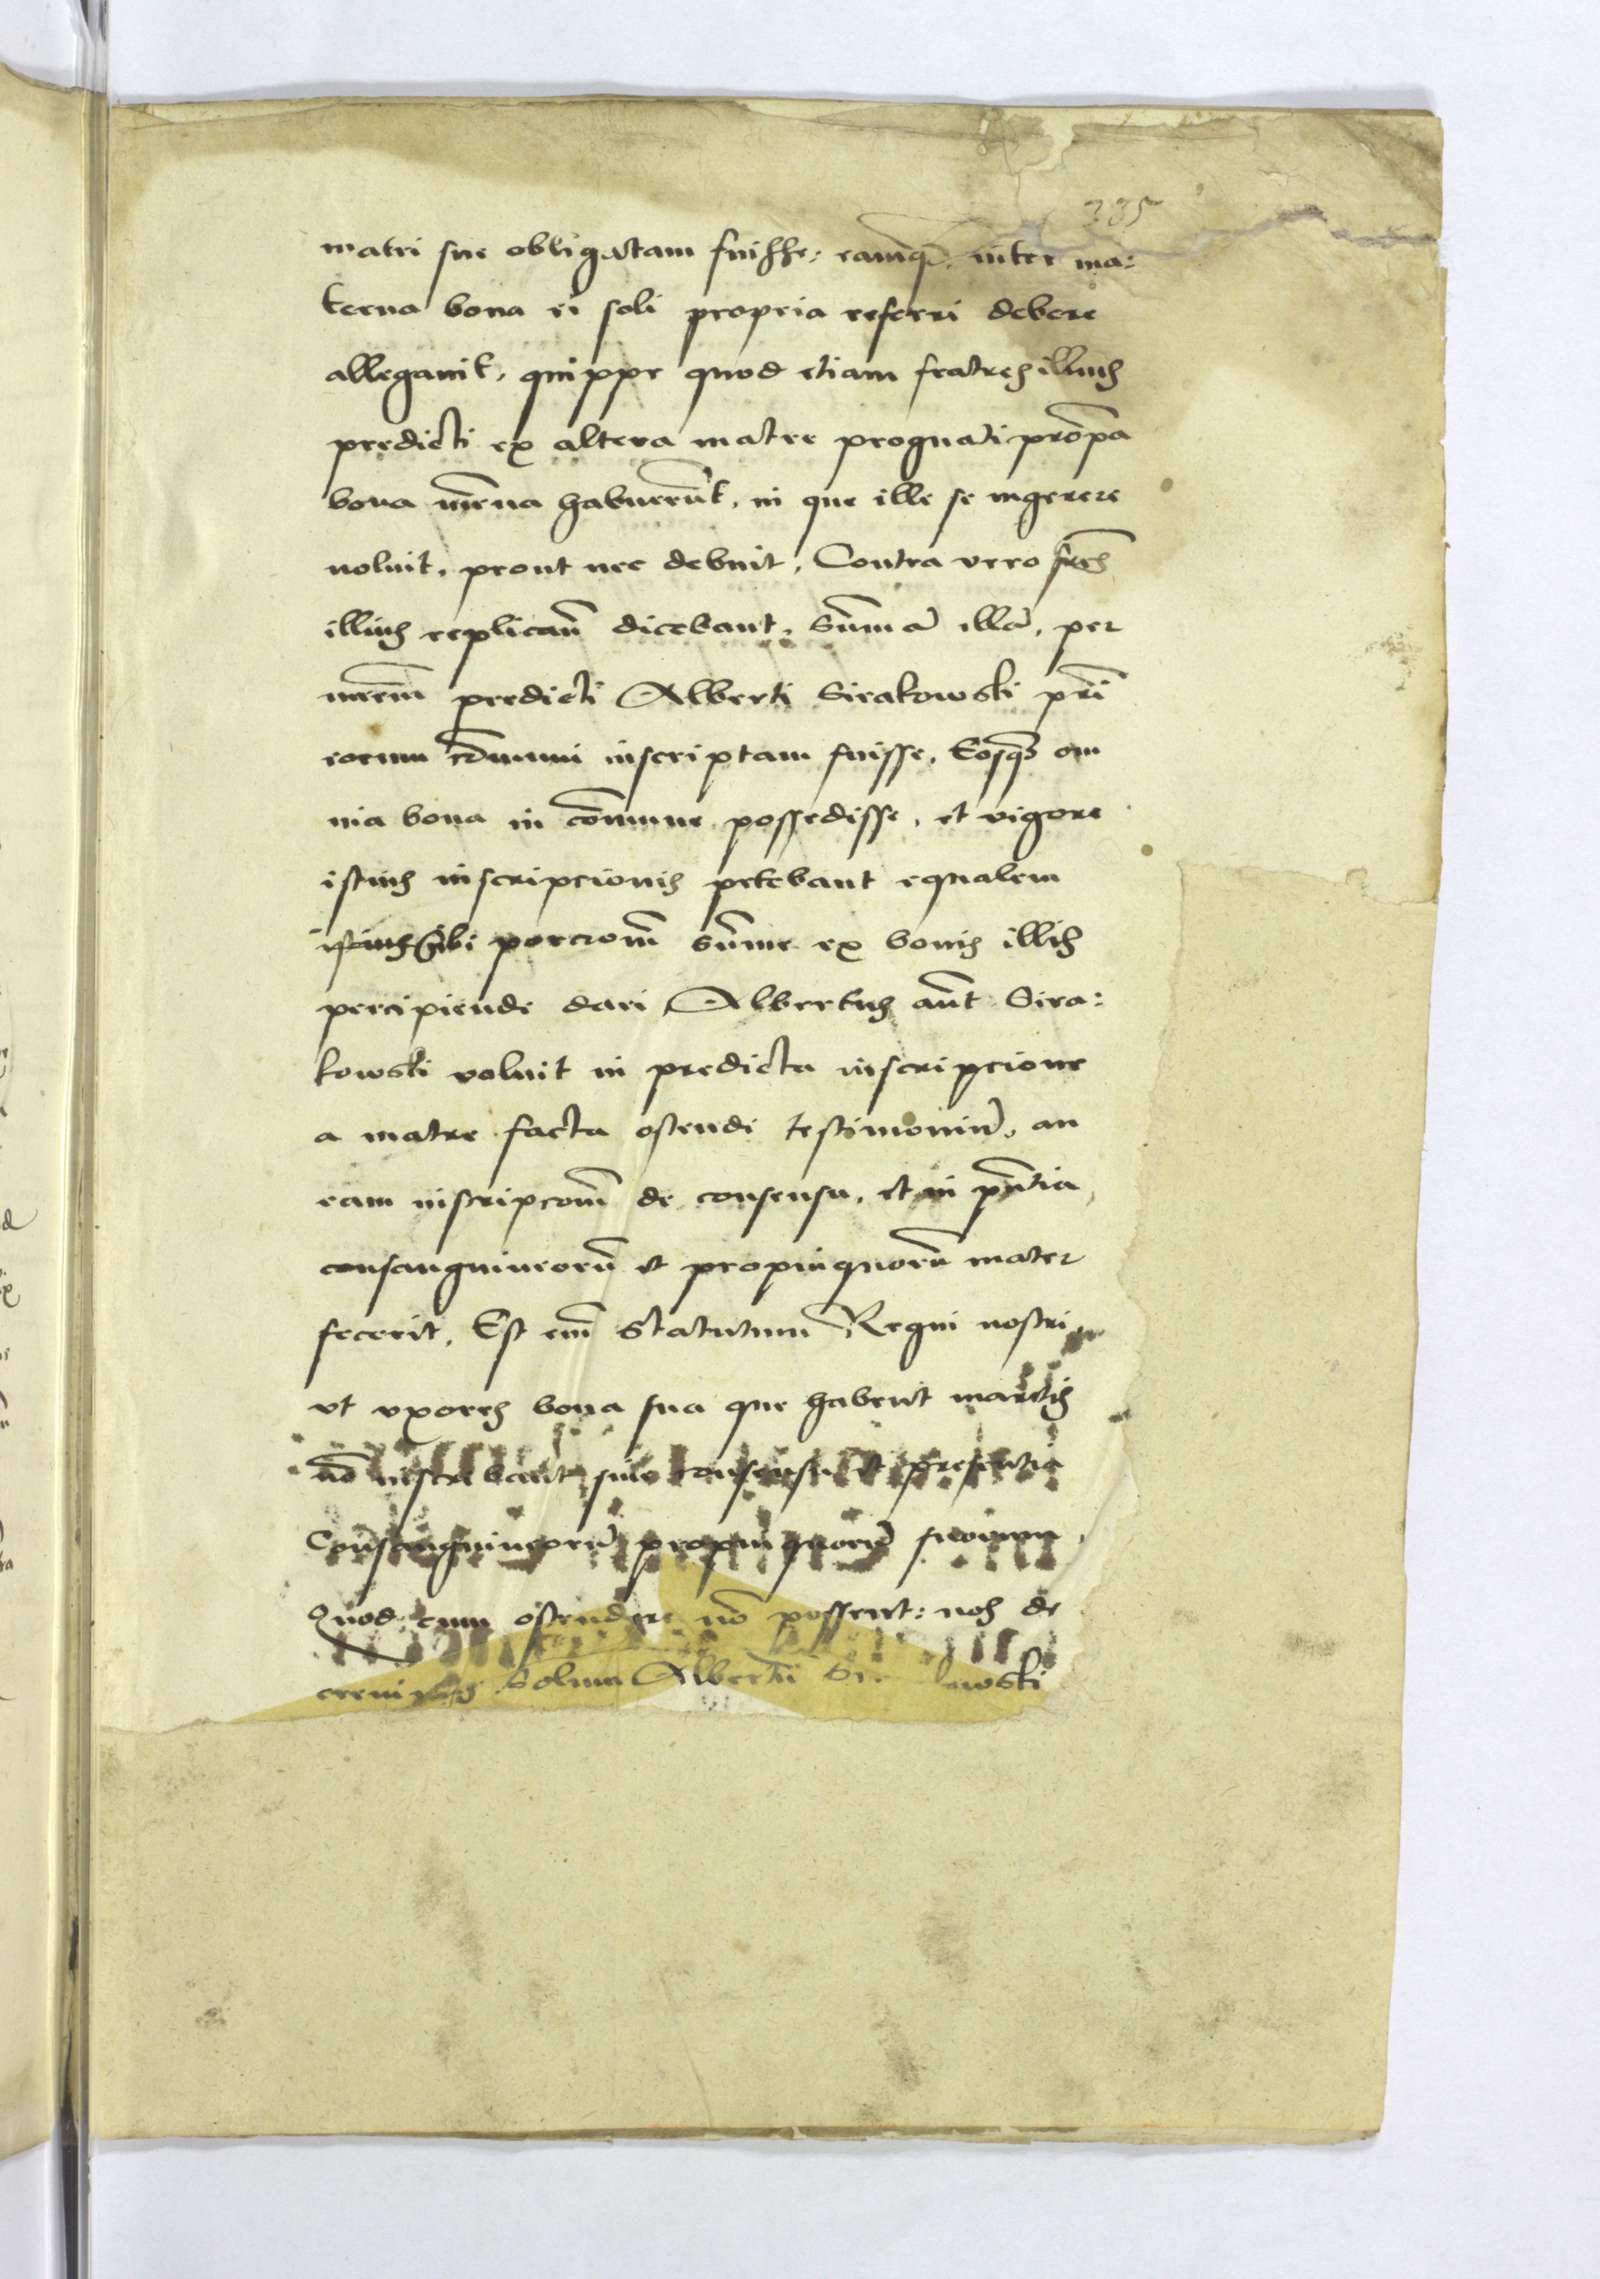 385
matri sue obligatam fuisse: eamq̃, inter ma:
terna bona ei soli propria referri debere
allegauit, quippe quod etiam fratres illius
predicti ex altera matre prognati prop̃a
bona m̃rna habuerũt, in que ille se ingerere
noluit, prout nec debuit, Contra vero fr̃es
illius replicañ dicebant, Sum̃ã illã, per
mr̃em predicti Alberti Sirakowski pr̃i
eorum cõmuni inscriptam fuisse, Eosq̃ om
nia bona in cõmune possedisse, et vigore
istius inscripcionis petebant equalem
sibi porcionẽ sum̃e ex bonis illis
percipiende dari Albertus aũt Sira:
kowski voluit in predicta inscripcione
a matre facta ostendi testimoniũ, an
eam inscripc̃onẽ de consensu, et in pñtia
consanguineorũ et propinquorũ mater
fecerit, Est em̃ Statutum Regni nostri
vt vxores bona sua que habent maritis
nõ inscribant sine consensu et presentia
Consanguineorũ propinquorũ suorum,
Quod cum ostendere nõ possent: nos de
Solum Alberti Si lowski